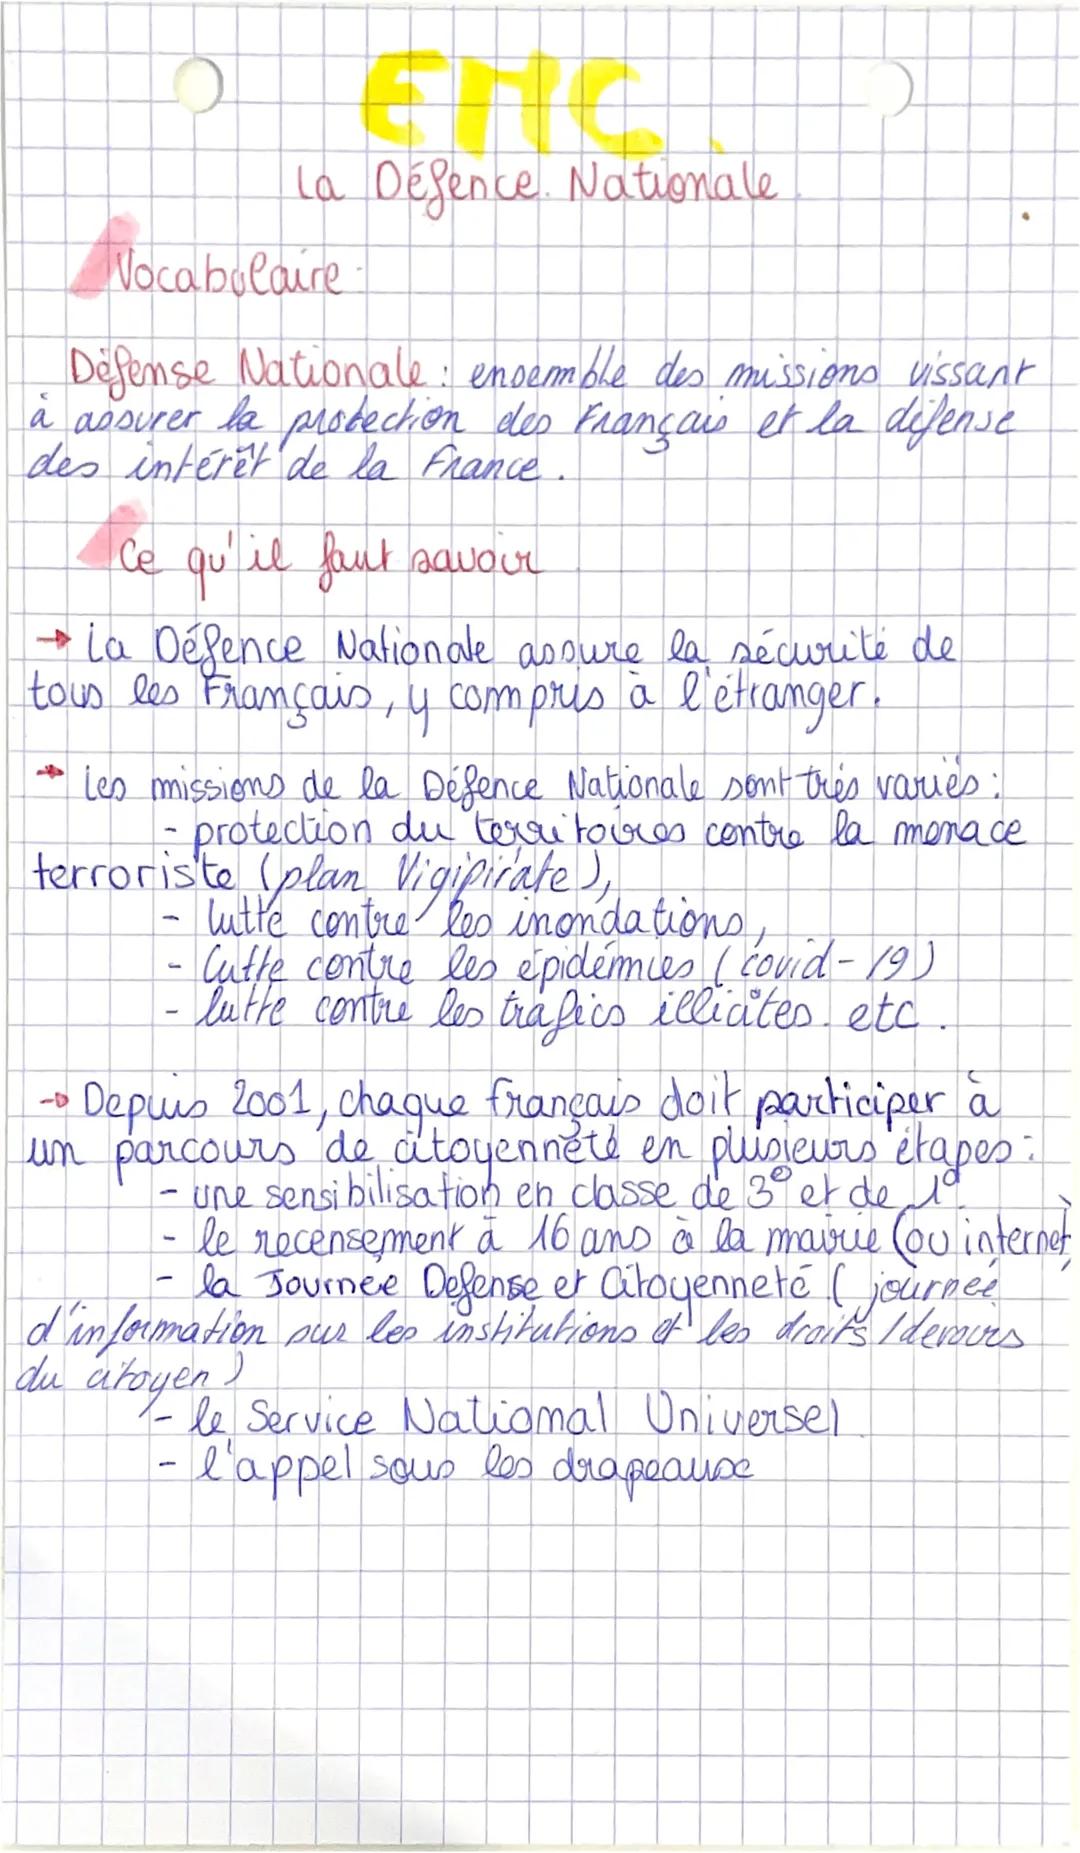 EMC.
La Défence Nationale
Vocabulaire
Défense Nationale : ensemble des missions vissant
à assurer la protection des Français et la défense
des intérêt de la France.
Ce qu'il faut savoir
→ La Défence Nationale assure la sécurité de
tous les Français, y compris à l'étranger.
→ Les missions de la Défence Nationale sont très variés :
- protection du territoires contre la menace
terroriste (plan Vigipirate),
- lutte contre les inondations,
- lutte contre les épidémies (covid-19)
- lutte contre les trafics illicites. etc.
→ Depuis 2001, chaque français doit participer à
un parcours de citoyenneté en plusieurs étapes :
- une sensibilisation en classe de 3e et de 1e.
- le recensement à 16 ans à la mairie (ou internet)
- la Journée Defense et Citoyenneté (journée
d'information sur les institutions et les droits / devoirs
du citoyen)
- le Service National Universel
- l'appel sous les drapeaux